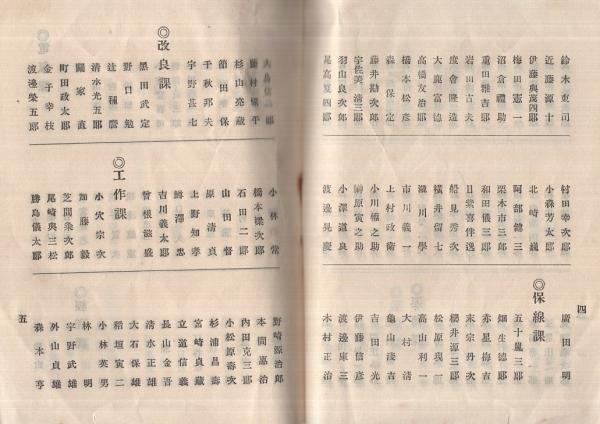 四
鈴木東司
近藤源十
伊藤與萬四郎
梅田憲一
沼倉禮助
重田雅吉郎
岩田古夫
度會隆造
大鹿富德
高橋友治郎
橋本松彦
森久保定
藤井勘次郎
宇佐美清三郎
羽山良次郎
尾高夏四郎
村田幸次郎
小森芳太郎
北崎巍
阿部健三
栗本市三郎
和田儀三郎
日紫喜伴逸
船見秀次
横井留七
瀧川學
市川義一
上村政衛
小川權之助
榊原寅之助
小澤道良
渡邊晃慶
◎保線課
廣田明
五十嵐三郎
畑生德郎
赤星海吉
末宗丹次
櫻井源三郎
松原現一
高山利一
大村清
龜山淺吉
吉田光
伊藤信彦
渡邊庫三
木村正治
五
藤村廉平
杉山亮藏
節田泰保
千秋邦夫
宇野甚七
◎改良課
黑田武定
野口勉
辻種譽
清水光五郎
關家直
町田政太郎
金子幸枝
渡邊榮五郎
小林常
橋本樑次郎
石田二郎
山田督
原清貞
上野知孝
鱒澤忠
吉川義太郎
曾根滋盛
◎工作課
小穴宗次
加藤之毅
芝間粂次郎
尾崎興三松
勝島儀太郎
野崎源治郎
本間嘉治
内田克三郎
小松原壽次
杉浦昌壽
宮崎貞藏
立道信義
長山金吾
清水正雄
大石保雄
稻垣寅二
小林英男
林明
宇野武雄
外山貞雄
森本亨